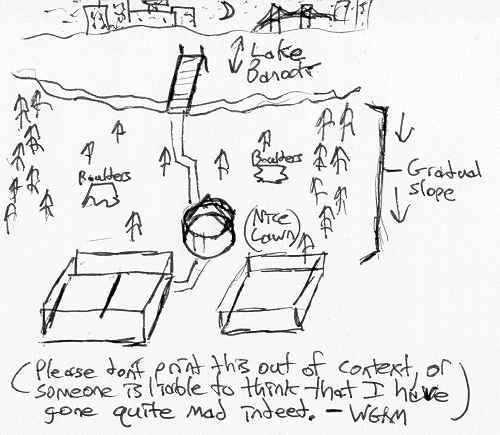 Lake
Baroct
Boulders
Boulders
Gradual
slope
(Nice
Lawn)
(Please don't print this out of context, or
someone is liable to think that I have
gone quite mad indeed. - WGRM)